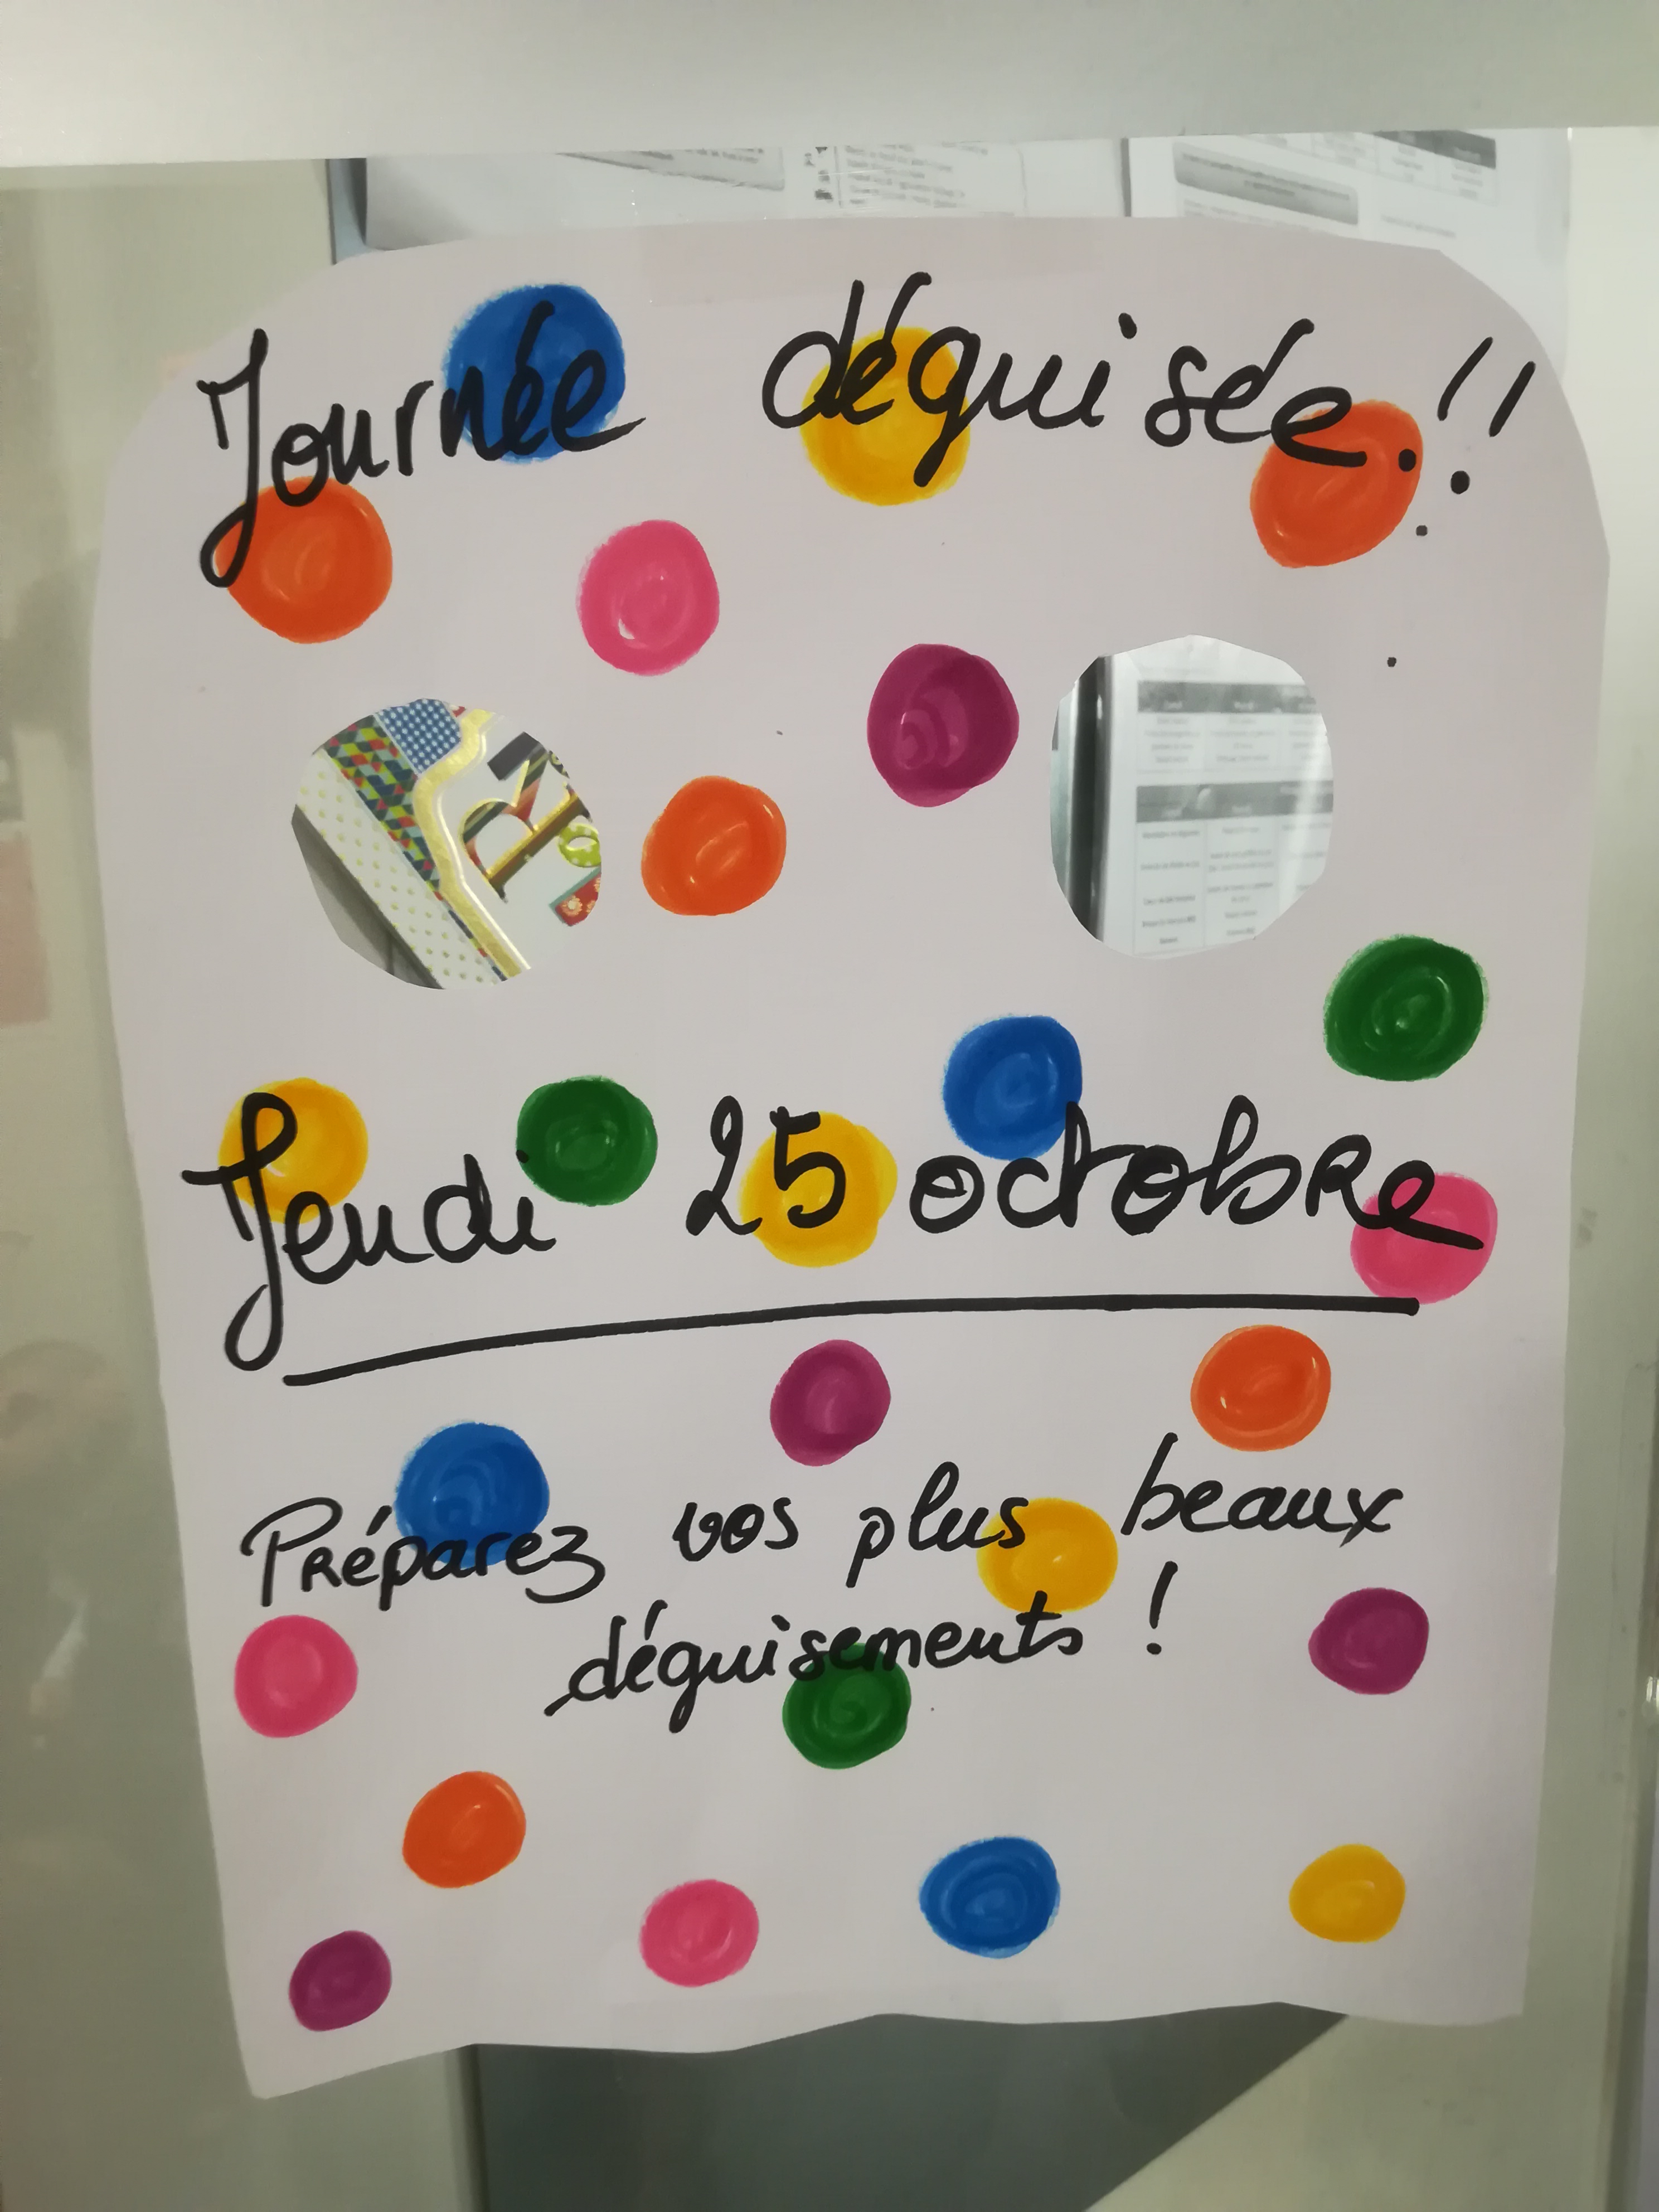 Journée déguisée!!
Jeudi 25 octobre
Préparez vos plus beaux
déguisements !